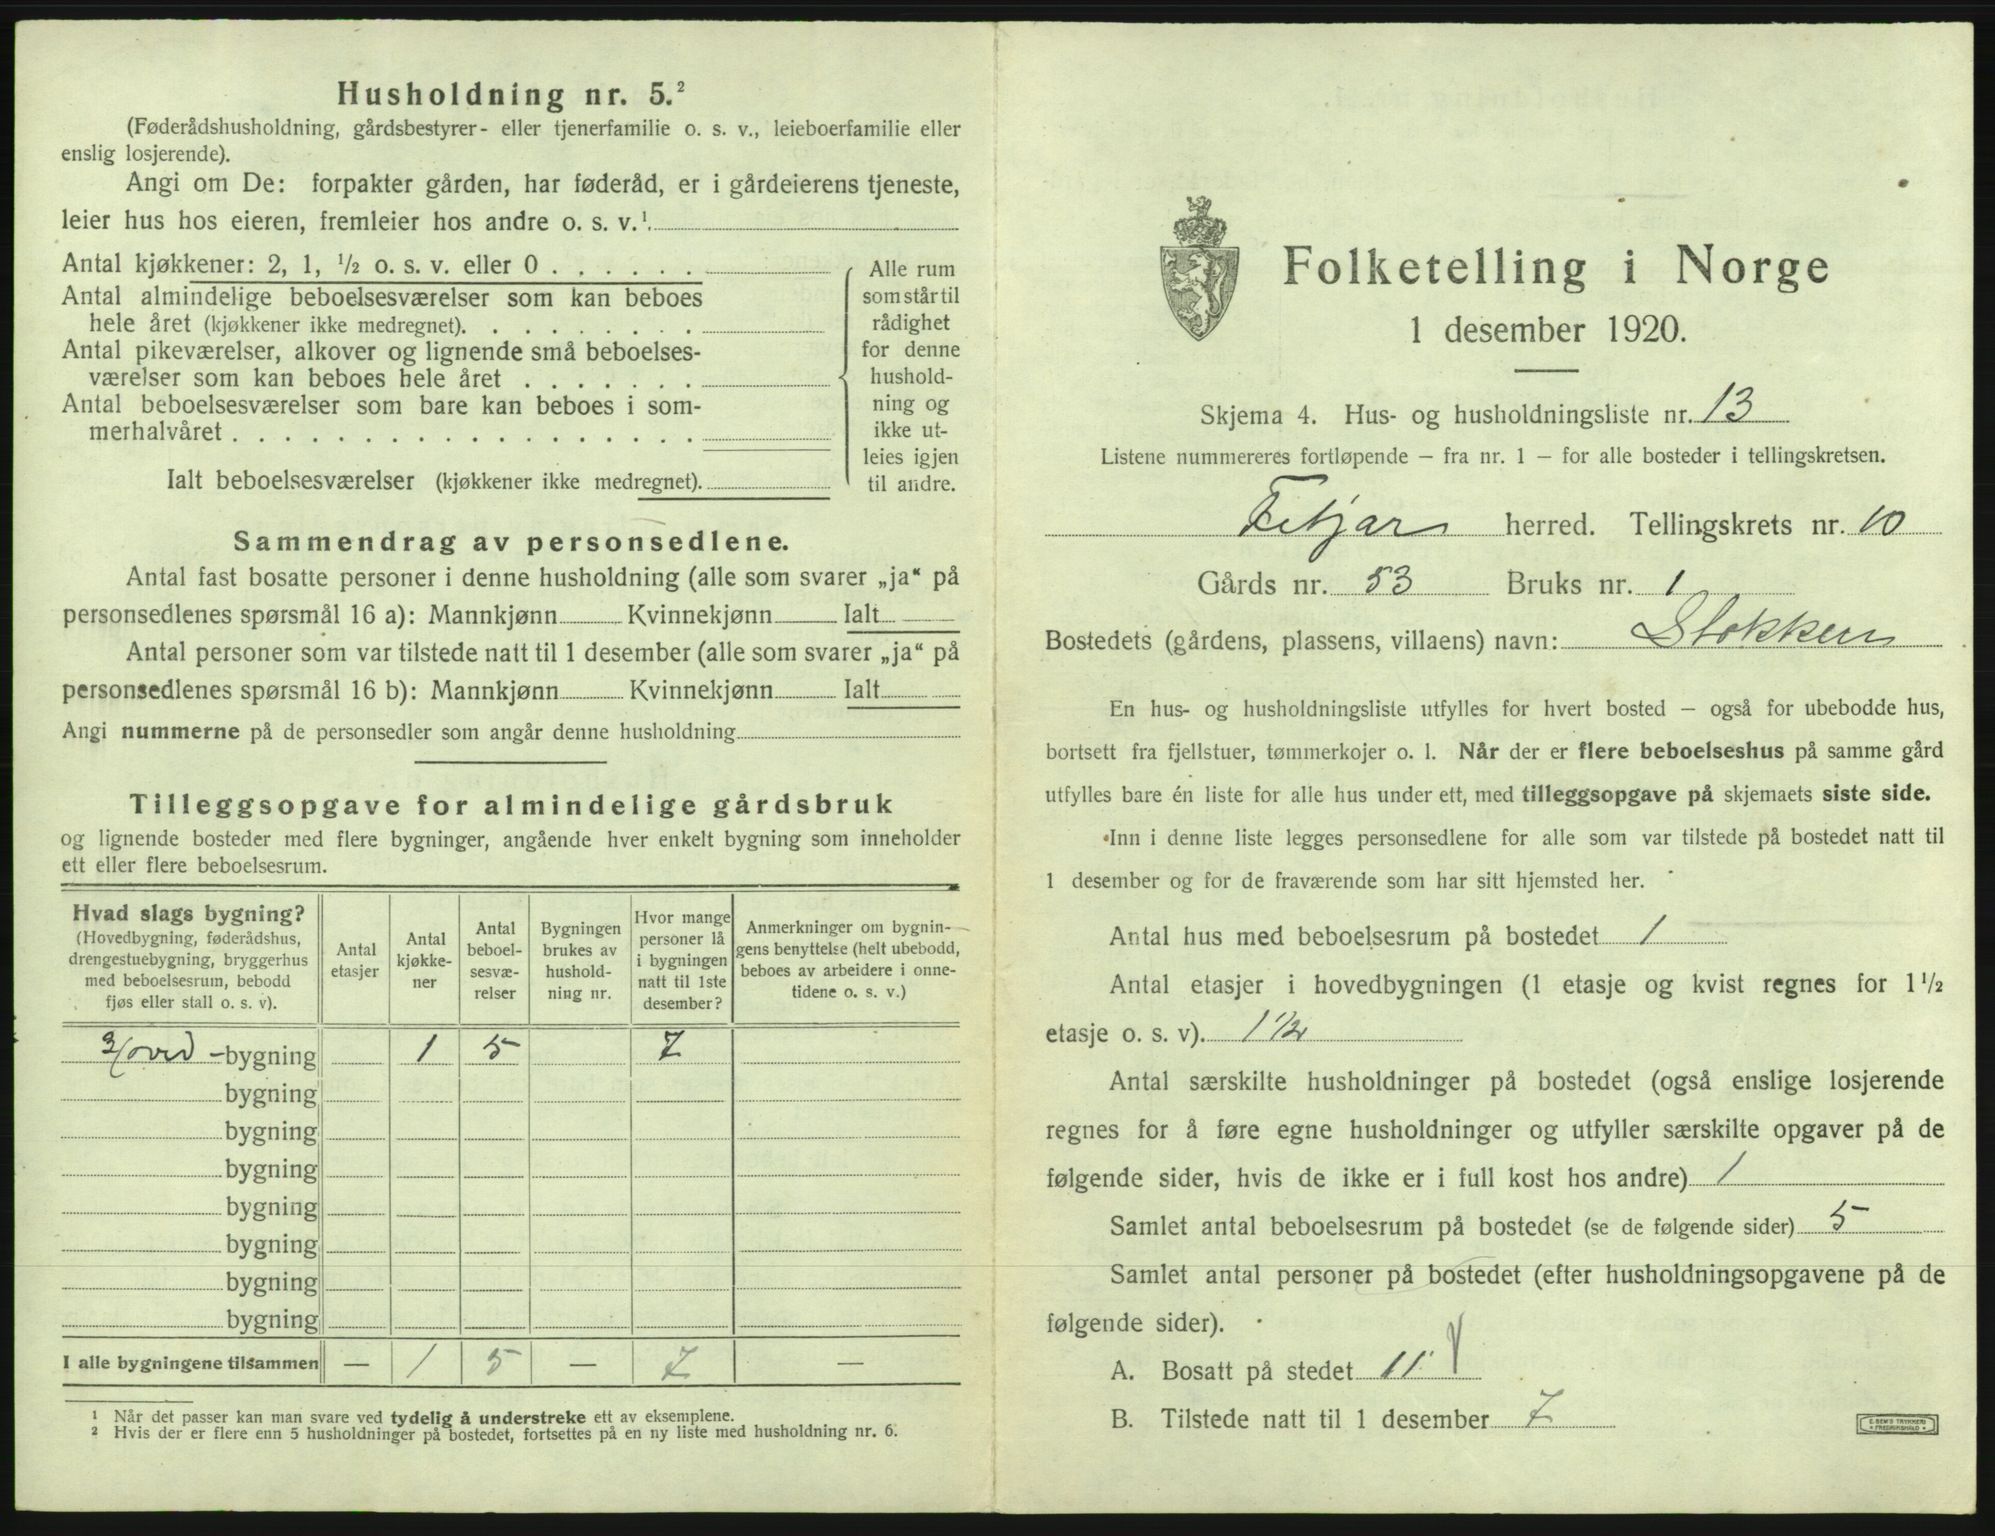 Husholdning nr. 5.²
(Føderådshusholdning, gårdsbestyrer- eller tjenerfamilie o. s. v., leieboerfamilie eller
enslig losjerende).
Angi om De: forpakter gården, har føderåd, er i gårdeierens tjeneste,
leier hus hos eieren, fremleier hos andre o. s. v.¹
Antal kjøkkener: 2, 1, ½ o. s. v. eller 0
Antal almindelige beboelsesværelser som kan beboes
hele året (kjøkkener ikke medregnet).
Antal pikeværelser, alkover og lignende små beboelses-
værelser som kan beboes hele året
Antal beboelsesværelser som bare kan beboes i som-
merhalvåret
Ialt beboelsesværelser (kjøkkener ikke medregnet).
Alle rum
som står til
rådighet
for denne
hushold-
ning og
ikke ut-
leies igjen
til andre.
Sammendrag av personsedlene.
Antal fast bosatte personer i denne husholdning (alle som svarer „ja“ på
personsedlenes spørsmål 16 a): Mannkjønn Kvinnekjønn Ialt
Antal personer som var tilstede natt til 1 desember (alle som svarer „ja“ på
personsedlenes spørsmål 16 b): Mannkjønn Kvinnekjønn Ialt
Angi nummerne på de personsedler som angår denne husholdning
Tilleggsopgave for almindelige gårdsbruk
og lignende bosteder med flere bygninger, angående hver enkelt bygning som inneholder
ett eller flere beboelsesrum.
Hvad slags bygning?
(Hovedbygning, føderådshus,
drengestuebygning, bryggerhus
med beboelsesrum, bebodd
fjøs eller stall o. s. v).
Antal
etasjer
Antal
kjøkke-
ner
Antal
beboel-
sesvæ-
relser
Bygningen
brukes av
hushold-
ning nr.
Hvor mange
personer lå
i bygningen
natt til 1ste
desember?
Anmerkninger om bygnin-
gens benyttelse (helt ubebodd,
beboes av arbeidere i onne-
tidene o. s. v.)
Hoved -bygning 1 5 7
bygning
bygning
bygning
bygning
bygning
bygning
bygning
I alle bygningene tilsammen — 1 5 — 7 —
¹ Når det passer kan man svare ved tydelig å understreke ett av eksemplene.
² Hvis der er flere enn 5 husholdninger på bostedet, fortsettes på en ny liste med husholdning nr. 6.
Folketelling i Norge
1 desember 1920.
Skjema 4. Hus- og husholdningsliste nr. 13
Listene nummereres fortløpende — fra nr. 1 — for alle bosteder i tellingskretsen.
Fitjar herred. Tellingskrets nr. 10
Gårds nr. 53 Bruks nr. 1
Bostedets (gårdens, plassens, villaens) navn: Stokken
En hus- og husholdningsliste utfylles for hvert bosted — også for ubebodde hus,
bortsett fra fjellstuer, tømmerkojer o. l. Når der er flere beboelseshus på samme gård
utfylles bare én liste for alle hus under ett, med tilleggsopgave på skjemaets siste side.
Inn i denne liste legges personsedlene for alle som var tilstede på bostedet natt til
1 desember og for de fraværende som har sitt hjemsted her.
Antal hus med beboelsesrum på bostedet 1
Antal etasjer i hovedbygningen (1 etasje og kvist regnes for 1½
etasje o. s. v). 1½
Antal særskilte husholdninger på bostedet (også enslige losjerende
regnes for å føre egne husholdninger og utfyller særskilte opgaver på de
følgende sider, hvis de ikke er i full kost hos andre) 1
Samlet antal beboelsesrum på bostedet (se de følgende sider) 5
Samlet antal personer på bostedet (efter husholdningsopgavene på de
følgende sider).
A. Bosatt på stedet 11
B. Tilstede natt til 1 desember 7
E. SEM'S TRYKKERI
FREDRIKSHALD